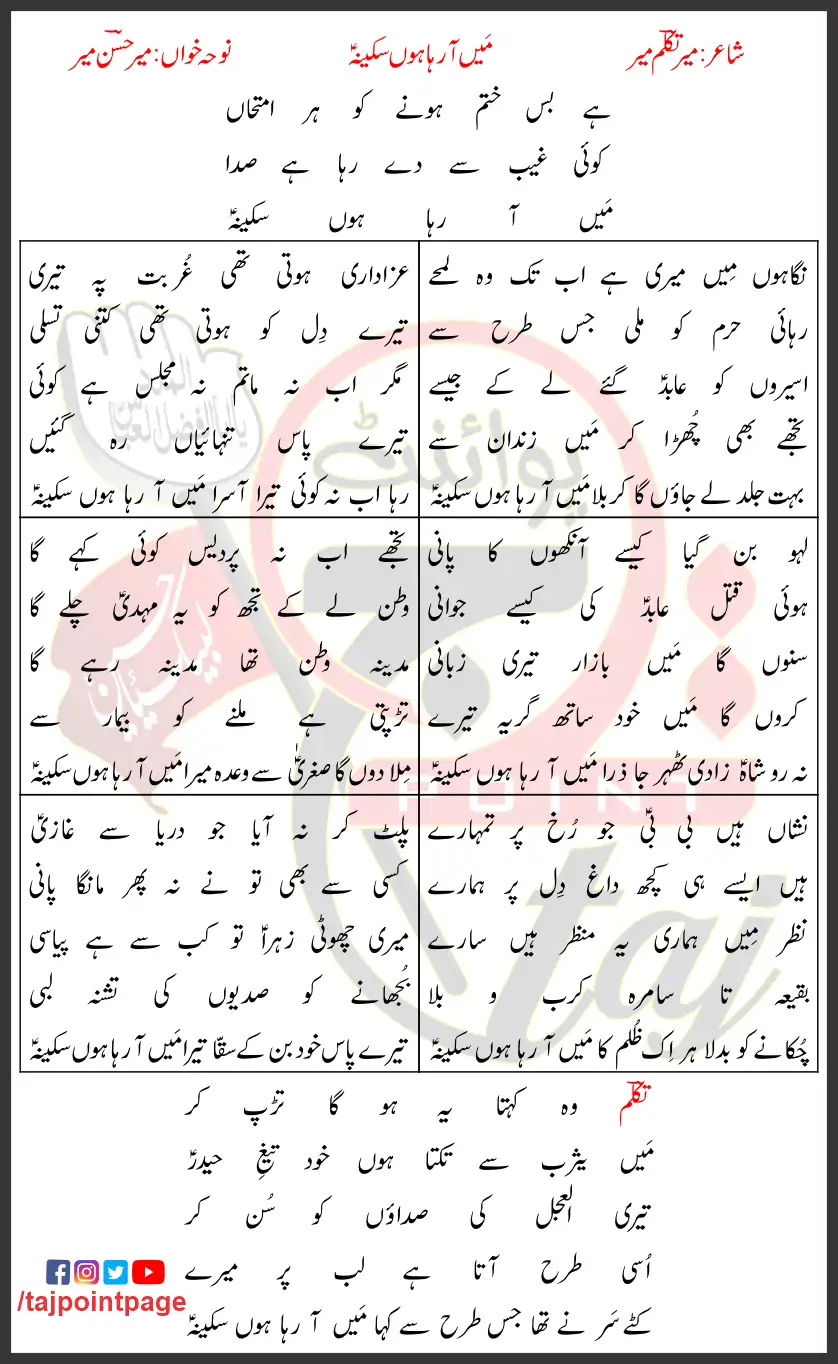 شاعر: میر تکلّم میر
مَیں آ رہا ہوں سکینہؑ
نوحہ خواں: میر حسن میر
ہے بس ختم ہونے کو ہر امتحاں
کوئی غیب سے دے رہا ہے صدا
مَیں آ رہا ہوں سکینہؑ
نگاہوں مِیں میری ہے اب تک وہ لمحے
رہائی حرم کو ملی جس طرح سے
اسیروں کو عابدؑ گئے لے کے جیسے
تجھے بھی چُھڑا کر مَیں زندان سے
بہت جلد لے جاؤں گا کربلا مَیں آ رہا ہوں سکینہؑ
عزاداری ہوتی تھی غُربت پہ تیری
تیرے دِل کو ہوتی تھی کتنی تسلی
مگر اب نہ ماتم نہ مجلس ہے کوئی
تیرے پاس تنہائیاں رہ گئیں
رہا اب نہ کوئی تیرا آسرا مَیں آ رہا ہوں سکینہؑ
لہو بن گیا کیسے آنکھوں کا پانی
ہوئی قتل عابدؑ کی کیسے جوانی
سنوں گا مَیں بازار تیری زبانی
کروں گا مَیں خود ساتھ گریہ تیرے
نہ رو شاہؑ زادی ٹھہر جا ذرا مَیں آ رہا ہوں سکینہؑ
تجھے اب نہ پردیس کوئی کہے گا
وطن لے کے تجھ کو یہ مہدیؑ چلے گا
مدینہ وطن تھا مدینہ رہے گا
تڑپتی ہے ملنے کو بیمار سے
مِلا دوں گا صغریٰؑ سے وعدہ میرا مَیں آ رہا ہوں سکینہؑ
نشاں ہیں بی بیؑ جو رُخ پر تمہارے
ہیں ایسے ہی کچھ داغ دِل پر ہمارے
نظر مِیں ہماری یہ منظر ہیں سارے
بقیعہ تا سامرہ کرب و بلا
چُکانے کو بدلا ہر اِک ظُلم کا مَیں آ رہا ہوں سکینہؑ
پلٹ کر نہ آیا جو دریا سے غازیؑ
کسی سے بھی تو نے نہ پھر مانگا پانی
میری چھوٹی زہراؑ تو کب سے ہے پیاسی
بُجھانے کو صدیوں کی تشنہ لبی
تیرے پاس خود بن کے سقّا تیرا مَیں آ رہا ہوں سکینہؑ
تکلّم وہ کہتا یہ ہو گا تڑپ کر
مَیں یثرب سے تکتا ہوں خود تیغِ حیدرؑ
تیری العجل کی صداؤں کو سُن کر
اُسی طرح آتا ہے لب پر میرے
کٹے سَر نے تھا جس طرح سے کہا مَیں آ رہا ہوں سکینہؑ
پوائنٹ
POINT
taj
لبیک یا حسینؑ
یا ابالفضل العباسؑ
/tajpointpage